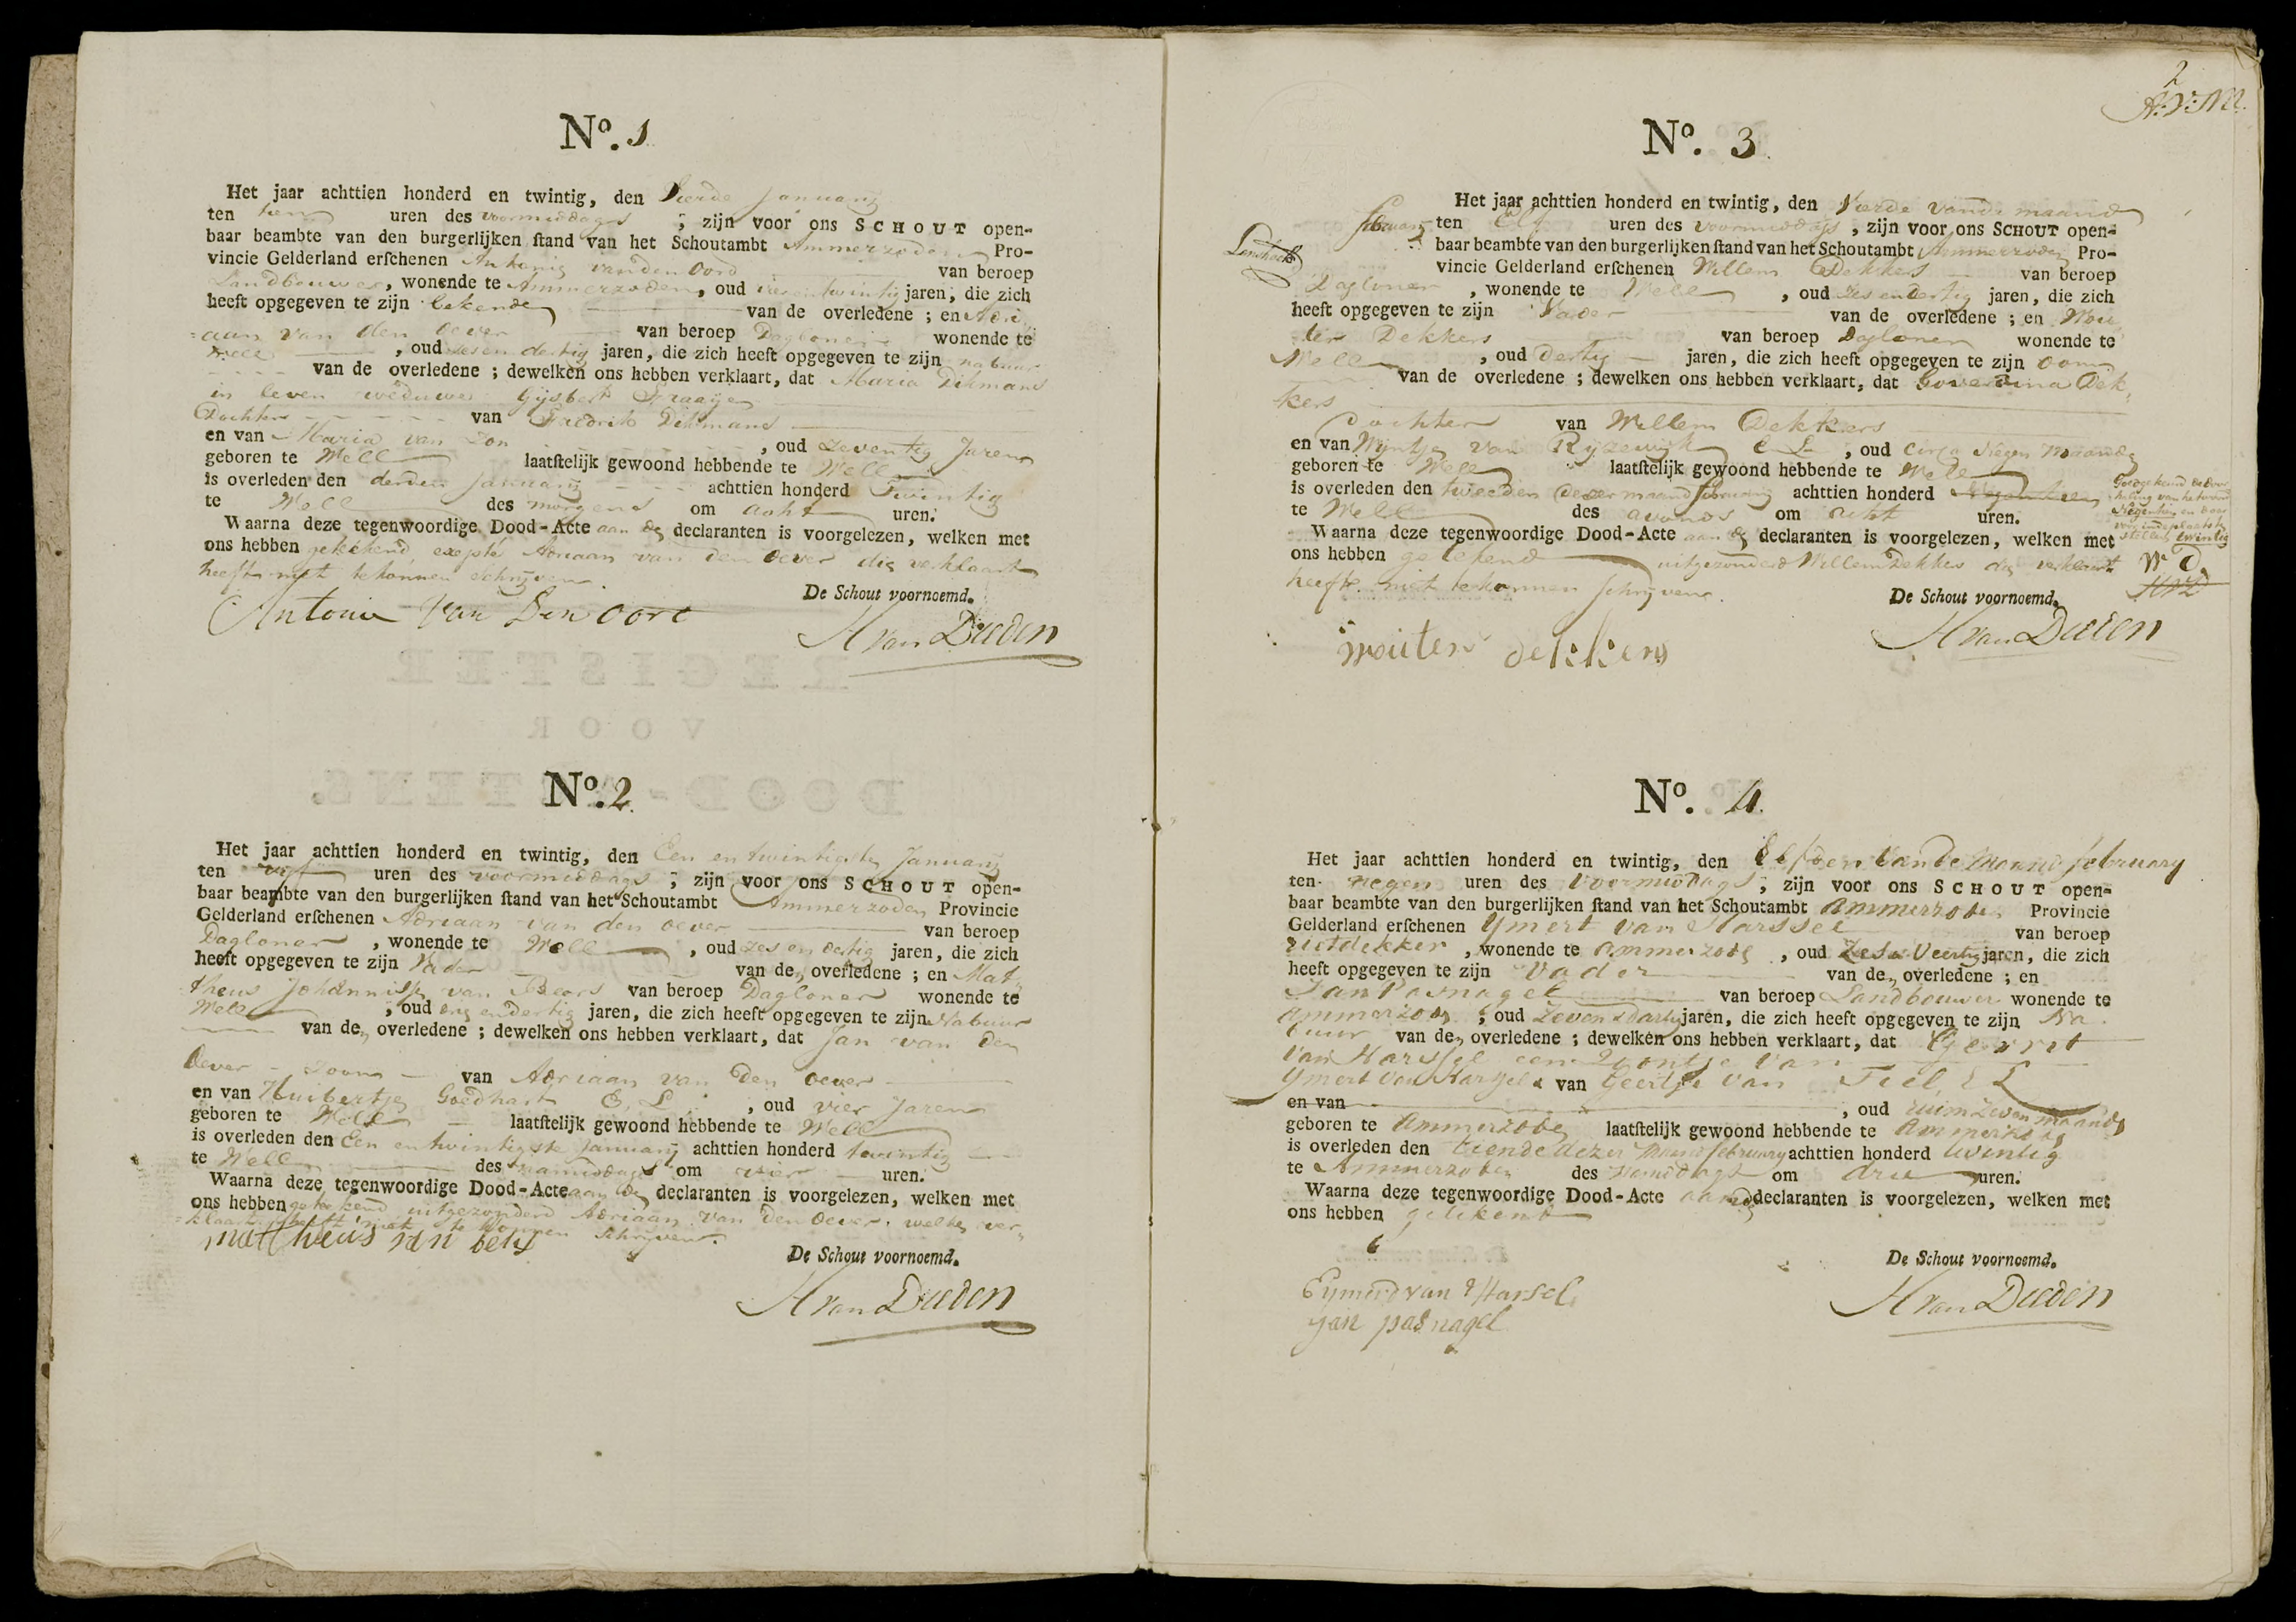 No. 1
Het jaar achttien honderd en twintig, den Vierde January
ten tien uren des voormiddags ; zijn voor ons SCHOUT open-
baar beambte van den burgerlijken stand van het Schoutambt Ammerzoden Pro-
vincie Gelderland erschenen Antonij van den Oord van beroep
Landbouwer, wonende te Ammerzoden, oud vier en twintig jaren, die zich
heeft opgegeven te zijn bekende van de overledene ; en Adri
=aan van den Oever van beroep Dagloner wonende te
Well , oud zes en dertig jaren, die zich heeft opgegeven te zijn nabuur
van de overledene ; dewelken ons hebben verklaart, dat Maria Dikmans
in leven weduwe Gijsbert
Dochter van Fredrik Dikmans
en van Maria van Zon , oud zeventig Jaren
geboren te Well laatstelijk gewoond hebbende te Well
is overleden den derden January achttien honderd Twintig
te Well des morgens om acht uren.
Waarna deze tegenwoordige Dood-Acte aan de declaranten is voorgelezen, welken met
ons hebben getekend exepte Adriaan van den Oever die verklaart
heeft niet te konnen schrijven.
De Schout voornoemd.
Antonie Van Den Oort
H van Dieden
No. 2.
Het jaar achttien honderd en twintig, den Een en twintigste January
ten vijf uren des voormiddags ; zijn voor ons SCHOUT open-
baar beambte van den burgerlijken stand van het Schoutambt Ammerzoden Provincie
Gelderland erschenen Adriaan van den Oever van beroep
Dagloner , wonende te Well , oud zes en dertig jaren, die zich
heeft opgegeven te zijn Vader van de overledene ; en Mat-
theus Johannisse van Beers van beroep Dagloner wonende te
Well , oud drij en dertig jaren, die zich heeft opgegeven te zijn Nabuur
van de overledene ; dewelken ons hebben verklaart, dat Jan van den
Oever - Zoon van Adriaan van den Oever
en van Huibertje Goedhart E. L. , oud vier Jaren
geboren te Well laatstelijk gewoond hebbende te Well
is overleden den Een en twintigste January achttien honderd twintig
te Well des namiddags om vier uren.
Waarna deze tegenwoordige Dood-Acte aan de declaranten is voorgelezen, welken met
ons hebben getekend uitgezonderd Adriaan van den Oever. welke ver-
klaart heeft niet te konnen schrijven.
mattheus van
De Schout voornoemd.
H van Dieden
2
No. 3.
Het jaar achttien honderd en twintig, den Vierde van de maand
february ten Elf uren des voormiddags , zijn voor ons SCHOUT open-
baar beambte van den burgerlijken stand van het Schoutambt Ammerzoden Pro-
vincie Gelderland erschenen Willem Dekkers van beroep
Dagloner , wonende te Well , oud zes en dertig jaren, die zich
heeft opgegeven te zijn Vader van de overledene ; en Wou
ter Dekkers van beroep Dagloner wonende te
Well , oud dertig jaren, die zich heeft opgegeven te zijn oom
van de overledene ; dewelken ons hebben verklaart, dat Goverdina Dek-
kers
Dochter van Willem Dekkers
en van Wijntje van Rijzewijk E L , oud circa Negen maanden
geboren te Well laatstelijk gewoond hebbende te Well
is overleden den tweeden dezer maand february achttien honderd Negentien
te Well des avonds om acht uren.
Goedgekeurd de door
haling van het woord
Negentien en daar
voor in de plaats te
stellen twintig
W D
Waarna deze tegenwoordige Dood-Acte aan de declaranten is voorgelezen, welken met
ons hebben getekend uitgezonderd Willem Dekkers die verklaart
heeft niet te konnen schrijven.
De Schout voornoemd.
wouter dekkers
H van Dieden
No. 4.
Het jaar achttien honderd en twintig, den Elfden van de maand february
ten negen uren des voormiddags ; zijn voor ons SCHOUT open-
baar beambte van den burgerlijken stand van het Schoutambt Ammerzoden Provincie
Gelderland erschenen Ymert van Harssel van beroep
rietdekker , wonende te Ammerzode , oud Zes & Veertig jaren, die zich
heeft opgegeven te zijn Vader van de overledene ; en
Jan Pasnagel van beroep Landbouwer wonende te
Ammerzoden , oud Zeven & dartig jaren, die zich heeft opgegeven te zijn Na
buur van de overledene ; dewelken ons hebben verklaart, dat Gerrit
van Harssel een Zoontje van
Ymert van Harssel & van Geertje van Tiel E L
en van , oud ruim zeven maanden
geboren te Ammerzode laatstelijk gewoond hebbende te Ammerzode
is overleden den tiende dezer maand february achttien honderd twintig
te Ammerzoden des namiddags om drie uren.
Waarna deze tegenwoordige Dood-Acte aan de declaranten is voorgelezen, welken met
ons hebben getekent
De Schout voornoemd.
Eymerd van Harsel
jan pasnagel
H van Dieden